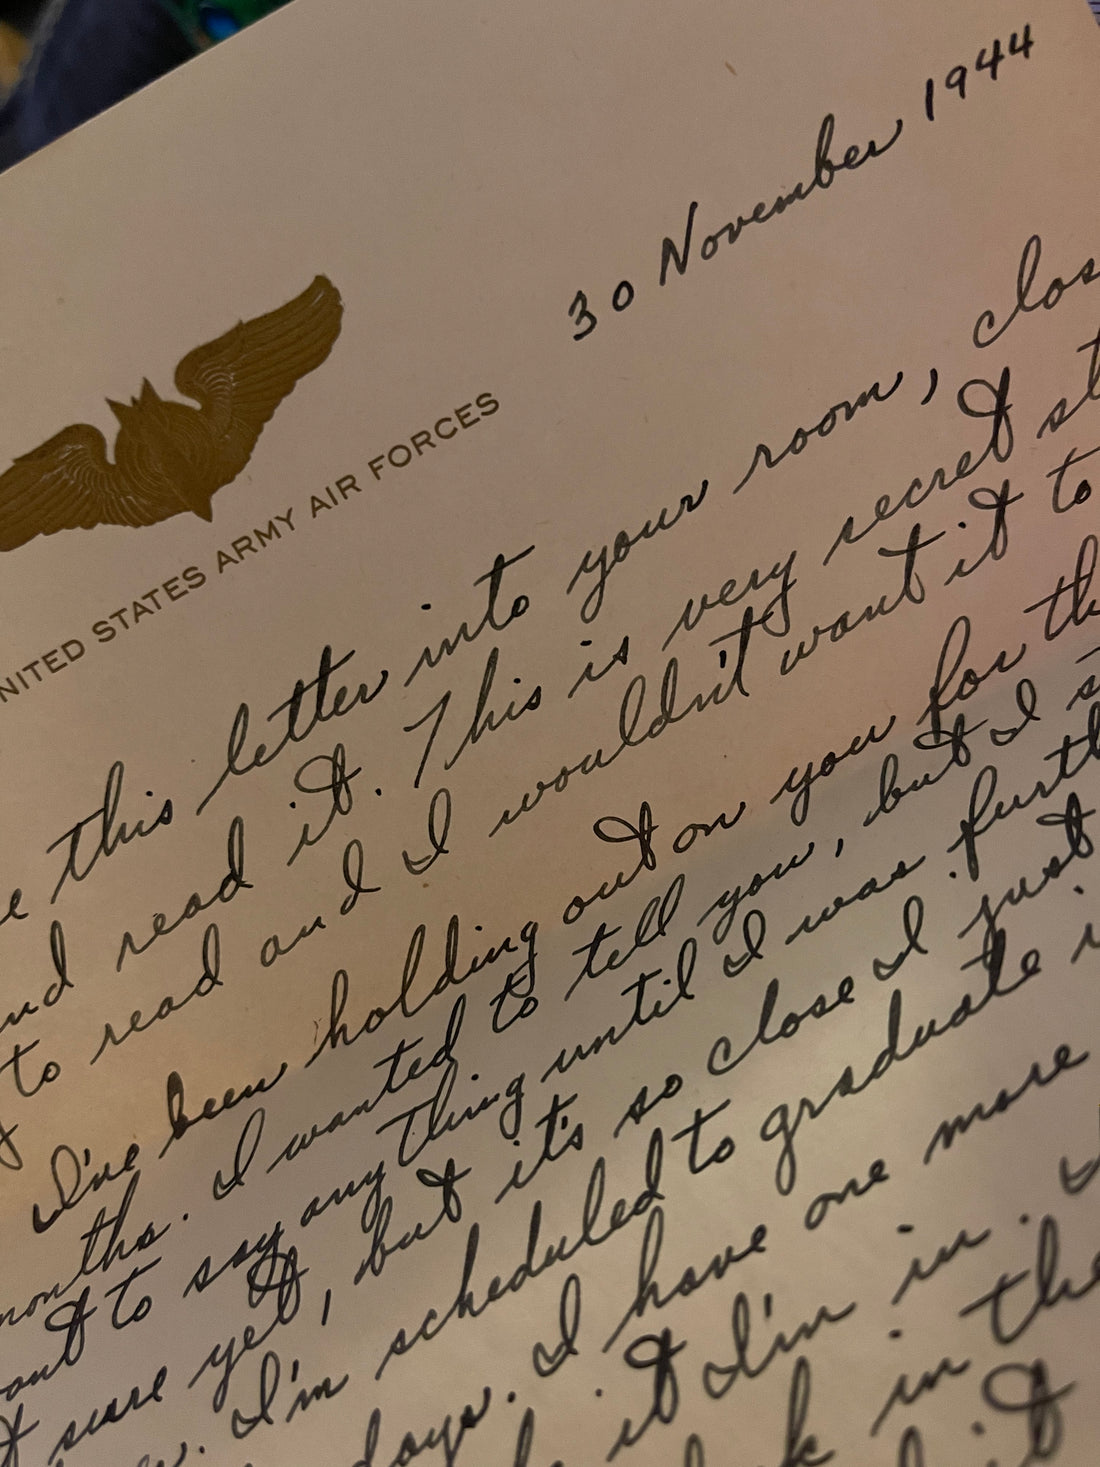 30 November 1944
UNITED STATES ARMY AIR FORCES
this letter into your room,
and read it. This is very secret
to read and I wouldn't want it to
I've been holding out on you for
months. I wanted to tell you, but I
want to say anything until I was
sure yet, but it's so close I just
I'm scheduled to graduate
days. I have one more
it I'm in. I
in the
it